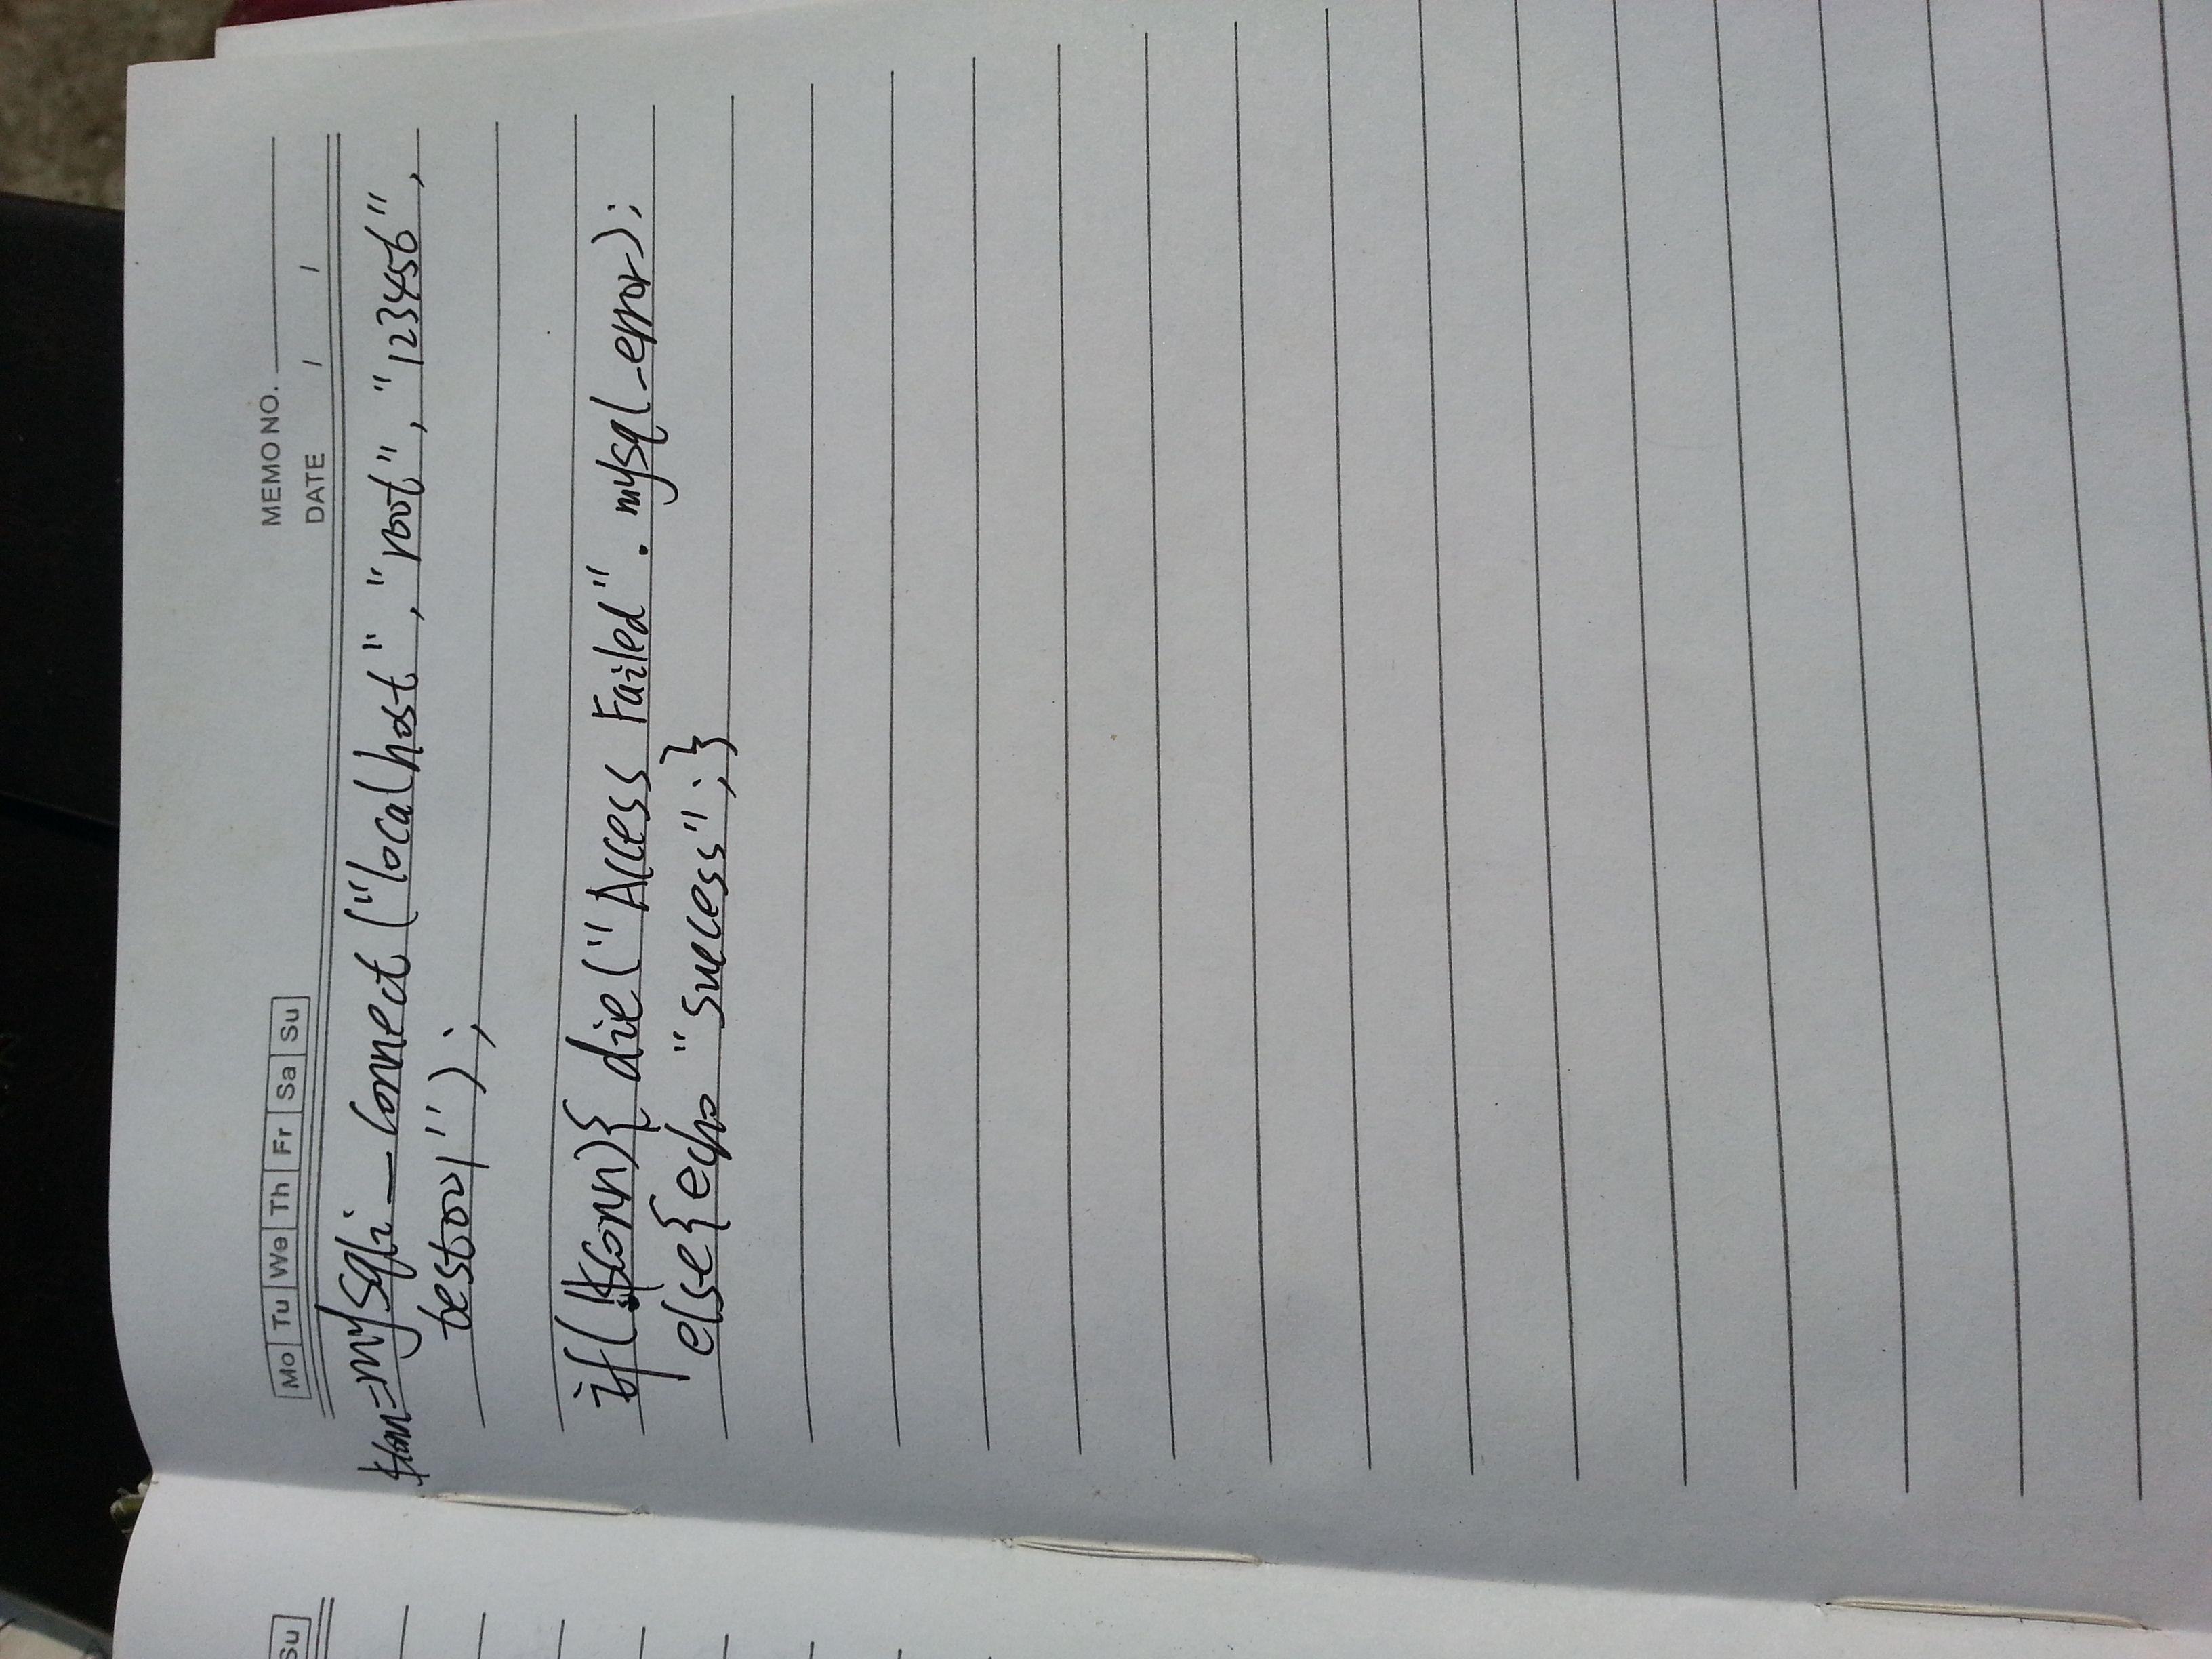 Su
Mo Tu We Th Fr Sa Su
MEMO NO.
DATE / /
$conn=mysqli_connect("localhost", "root", "123456",
test001");
if(!$conn){ die("Access Failed".mysql_error);
else{echo "success";}